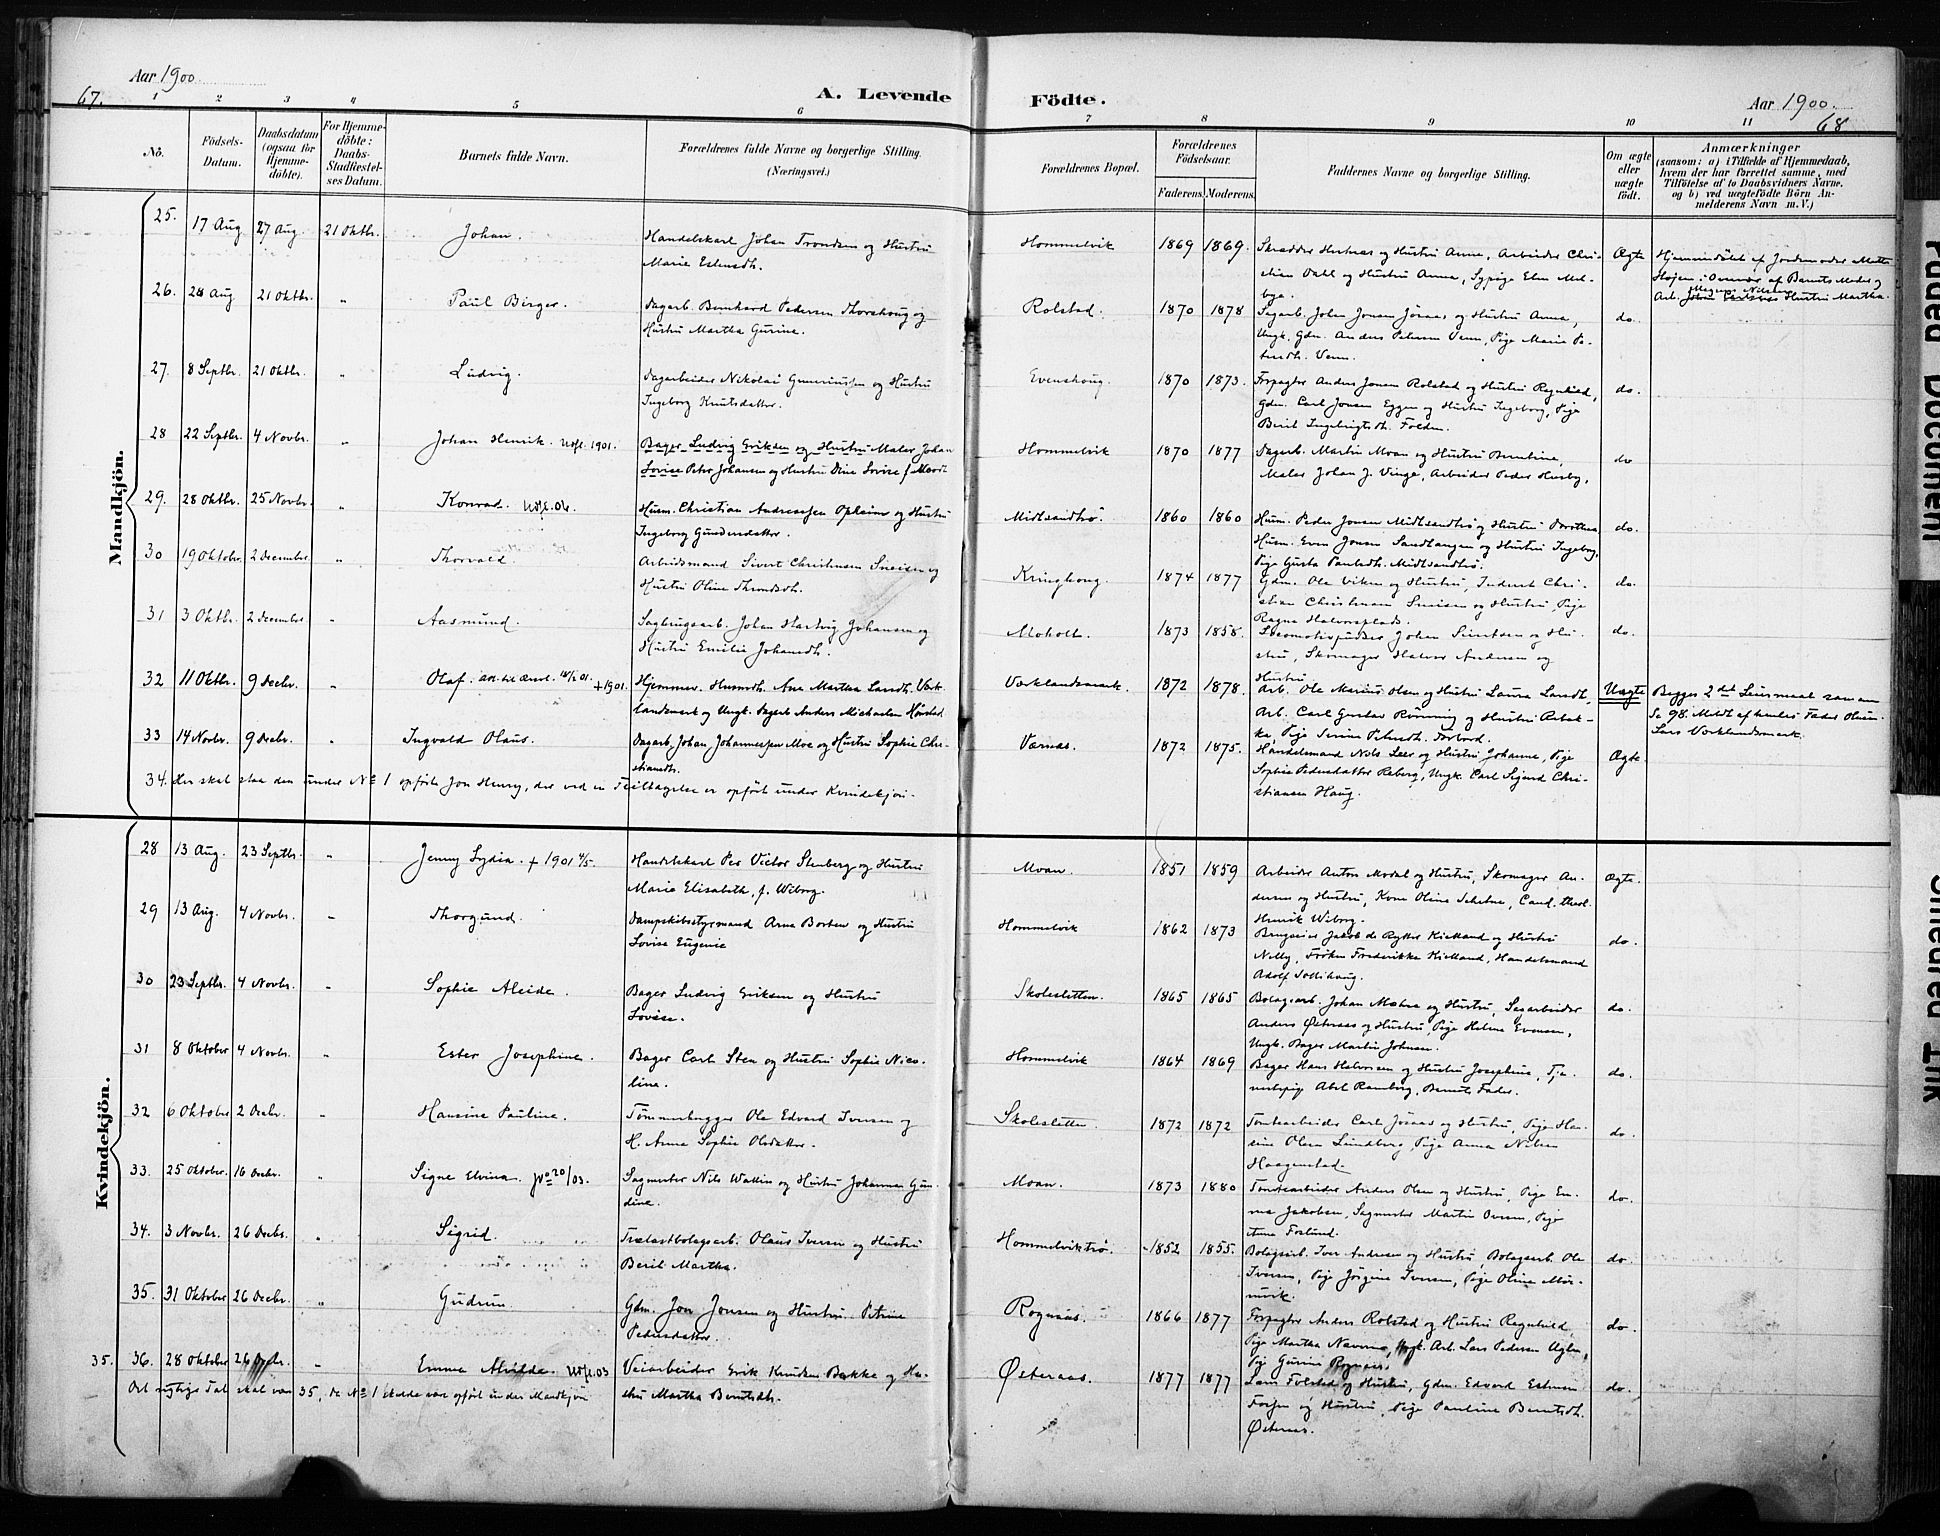 Aar 1900.
67.
A. Levende
Födte.
Aar 1900.
68
1 2 3 4 5 6 7 8 9 10 11
No.
Födsels-
Datum.
Daabsdatum
(ogsaa for
Hjemme-
döbte).
For Hjemme-
döbte:
Daabs-
Stadfæstel-
ses Datum.
Barnets fulde Navn.
Forældrenes fulde Navne og borgerlige Stilling.
(Næringsvei.)
Forældrenes Bopæl.
Forældrenes
Födselsaar.
Faderens. Moderens.
Faddernes Navne og borgerlige Stilling.
Om ægte
eller
uægte
födt.
Anmærkninger
(saasom: a) i Tilfælde af Hjemmedaab,
hvem der har forrettet samme, med
Tilföielse af to Daabsvidners Navne,
og b) ved uægtefödte Börn An-
melderens Navn m. V.)
Mandkjön.
25. 17 Aug. 27 Aug. 21 Oktbr. Johan. Handelskarl Johan Trondsen og Hustru
Marie Estensdt.
Hommelvik 1869 1869. Skrædder og Hustru Anna, Arbeider Chri-
stian Dahl og Hustru Anna, Sypige Elen Mel-
bye.
Ægte
Hjemmedöbt af Jordemoder Mette
Hojem i Overvær af Barnets Moder og
Arb. Hustru Martha.
26. 28 Aug. 21 Oktbr. " Paul Birger. Dagarb. Bernhard Pedersen Thorshaug og
Hustru Martha Gurine.
Rolstad. 1870 1878 Sagarb. John Jonsen Jøraas og Hustru Anna,
Ungk. Gdm. Anders Petersen Venn, Pige Marie Pe-
tersdt. Venn.
do.
27. 8 Septbr. 21 Oktbr. " Ludvig. Dagarbeider Nikolai Gunerius og Hustru
Ingeborg Knutsdatter.
Evenshaug. 1870 1873. Forpagter Anders Jonsen Rolstad og Hustru Ragnhild,
Gdm. Carl Jonsen Eggen og Hustru Ingeborg, Pige
Beril Ingebrigtsdt. Folden.
do.
28 22 Septbr. 4 Novbr. " Johan Henrik. Udfl. 1901. Bager Ludvig Eriksen og Hustru Maler Johan
Lovise Peter Johansen og Hustru Dina Lovise f.
Hommelvik 1870 1877 Dagarb. Martin Moan og Hustru Berntine,
Maler Johan J. Vinge, Arbeider Peder Husby,
do
29. 28 Oktbr. 25 Novbr. " Konrad. Udfl. 06. Husm. Christian Andreassen Opheim og Hustru
Ingeborg Gundersdatter.
Midtsandtrø. 1860 1860 Husm. Peder Jonsen Midtsandtrø og Hustru Dorthea,
Husm. Even Jonsen Sandtangen og Hustru Ingeborg,
Pige Gusta Paulsdt. Midtsandtrø.
do.
30 19 Oktober. 2 Decembre. " Thorvald. Arbeidsmand Sivert Christensen Sneisen og
Hustru Oline Throndsdt.
Kringhaug. 1874 1877 Gdm. Ole Viken og Hustru, Inderst Chri-
stian Christensen Sneisen og Hustru, Pige
Ragna Halvorsplads.
do.
31 3 Oktbr. 2 Decembre. " Aasmund. Sagbrugsarb. Johan Hartvig Johansen og
Hustru Emilie Johansdt.
Moholt. 1873 1858. Locomotivpudser Johan Sivertsen og Hu-
stru, Skomager Halvor Andersen og
Hustru
do.
32 11 Oktbr. 9 Decbr. " Olaf. 1901. Hjemmev. Husmdt. Ane Martha Larsdt. Vark-
landsmark og Ungk. Dagarb Anders Michaelsen
Varklandsmark. 1872 1878. Arb. Ole Marius Olsen og Hustru Laura Larsdt,
Arb. Carl Gustav Rönning og Hustru Rebek-
ka, Pige Serine Petersdt. Forbord.
Uægte
Begges 2det Leiermaal sammen
Se 98. Meldt af hendes Fader Husm.
Lars Varklandsmark.
33 14 Novbr. 9 Decbr. " Ingvald Olaus. Dagarb. Johan Johannessen Moe og Hustru Sophie Chri-
stiansdt.
Værnes. 1872 1875. Handelsmand Nils Leer og Hustru Johanne, Pige
Sophie Pedersdatter Reberg, Ungk. Carl Sigurd Chri-
stiansen Haug.
Ægte.
34. Her skal staa den under No 1 opförte Jon Henry, der ved en Feiltagelse er opfört under Kvindekjön.
Kvindekjön.
28 13 Aug. 23 Septbr. " Jenny Lydia. + 1901 4/5. Handelskarl Per Victor Stenberg og Hustru
Marie Elisabeth, f. Wiborg.
Moan. 1851 1859 Arbeider Anton Modal og Hustru, Skomager An-
dersen og Hustru, Kone Oline Schetne, Cand. theol.
Henrik Wiborg.
Ægte.
29 13 Aug. 4 Novbr. " Thorgund. Dampskibsstyrmand Arne Borten og Hustru
Lovise Eugenie
Hommelvik 1862 1873 Brugseier Jakob de Rytter Kielland og Hustru
Nelly, Frøken Frederikke Kielland, Handelsmand
Adolf Sollihaug.
do.
30 23 Septbr. 4 Novbr. " Sophie Aleide. Bager Ludvig Eriksen og Hustru
Lovise.
Skolesletten. 1865 1865 Bolagsarb. Johan Mæhre og Hustru, Sagarbeider
Anders Østeraas og Hustru, Pige Helene Evensen,
Ungk. Bager Martin Johnsen.
do.
31 8 Oktober 4 Novbr. " Ester Josephine. Bager Carl Sten og Hustru Sophie Nico-
line.
Hommelvik 1864 1869 Bager Hans Halvorsen og Hustru Josephine, Tje-
nestepige Abel Ramberg, Barnets Fader.
do.
32 6 Oktober 2 Decbr. " Hansine Pauline. Tömmerhugger Ole Edvard Iversen og
H. Anna Sophie Olsdatter.
Skolesletten. 1872 1872 Tomtearbeider Carl Jøraas og Hustru, Pige Han-
sine Olsen Lundberg, Pige Anna Nilsen
Haagenstad.
do.
33. 25 Oktober. 16 Decbr. " Signe Elvina. 20/03. Sagmester Nils Wallin og Hustru Johanna Gun-
dine.
Moan. 1873 1880 Tomtearbeider Anders Olsen og Hustru, Pige Em-
ma Jakobsen, Sagmester Martin Ovesen, Pige
Anna Forlund.
do.
34. 3 Novbr. 26 Decbr. " Sigrid. Trælastbolagsarb. Olaus Iversen og Hustru
Beril Martha.
Hommelviktrø. 1852 1855. Bolagsarb. Iver Andersen og Hustru, Bolagsarb. Ole
Iversen, Pige Jörgine Iversen, Pige Oline Mör-
murk.
do.
35. 31 Oktober 26 Decbr. " Gudrun Gdm. Jon Jonsen og Hustru Petrine
Pedersdatter.
Rognaas. 1866 1877 Forpagter Anders Rolstad og Hustru Ragnhild,
Pige Martha Naverna, Ungk. Arb. Lars Pedersen Uglen,
Pige Gurine Rognaas.
do.
35. 36. 28 Oktober 26 Decbr. " Emma Alvilde. Udfl. 03 Veiarbeider Erik Knudsen Bakke og Hu-
stru Martha Berntsdt.
Østeraas. 1877 1877 Lars Folstad og Hustru, Gdm. Edvard Estensen
Forsen og Hustru, Pige Pauline Berntsdt.
Østeraas.
do.
Det rigtige Tal skal være 35, da No 1 skulde være opfört under Mandkjön